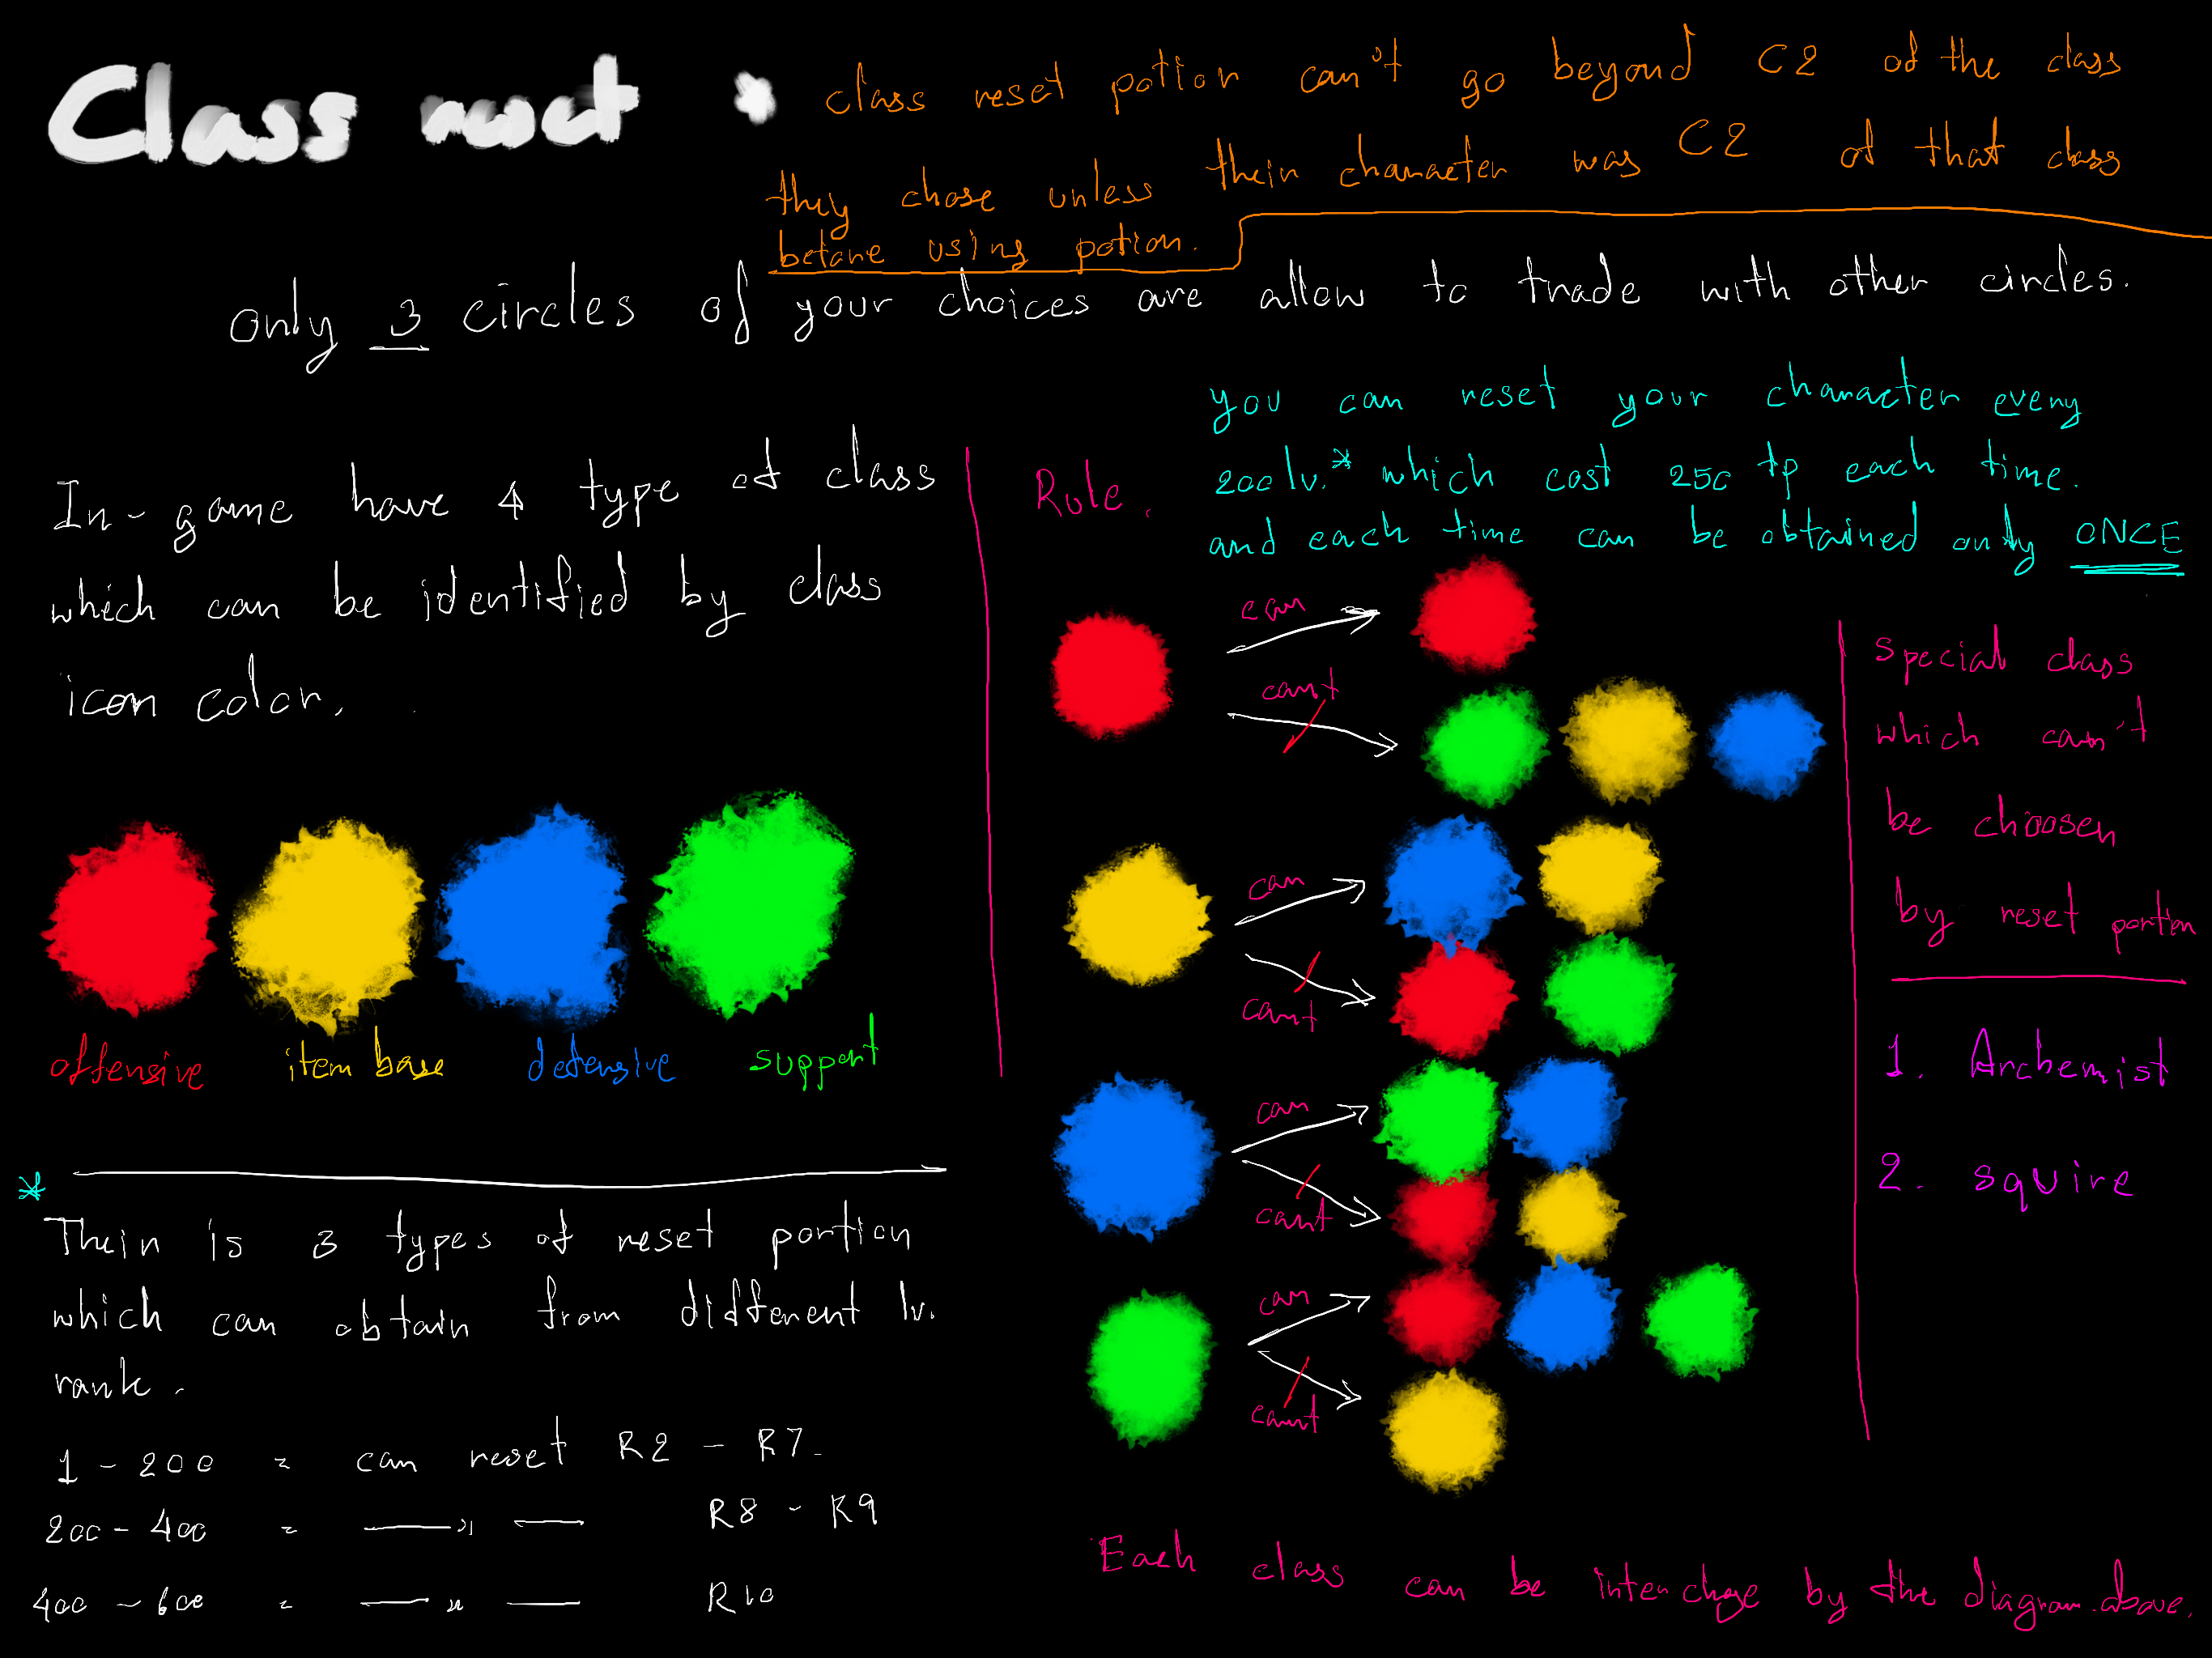 Class reset
* class reset potion can't go beyond C2 of the class
they chose unless their character was C2 of that class
before using potion.
only 3 circles of your choices are allow to trade with other circles.
In-game have 4 type of class
which can be identified by class
icon color.
offensive item base defensive support
*
Their is 3 types of reset portion
which can obtain from different lv.
rank.
1 - 200 = can reset R2 - R7.
200 - 400 = —— " —— R8 - R9
400 - 600 = —— " —— R10
Rule.
you can reset your character every
200 lv.* which cost 250 tp each time.
and each time can be obtained only ONCE
can
can't
can
can't
can
can't
can
can't
Each class can be interchage by the diagram above.
special class
which can't
be choosen
by reset portion
1. Archemist
2. squire